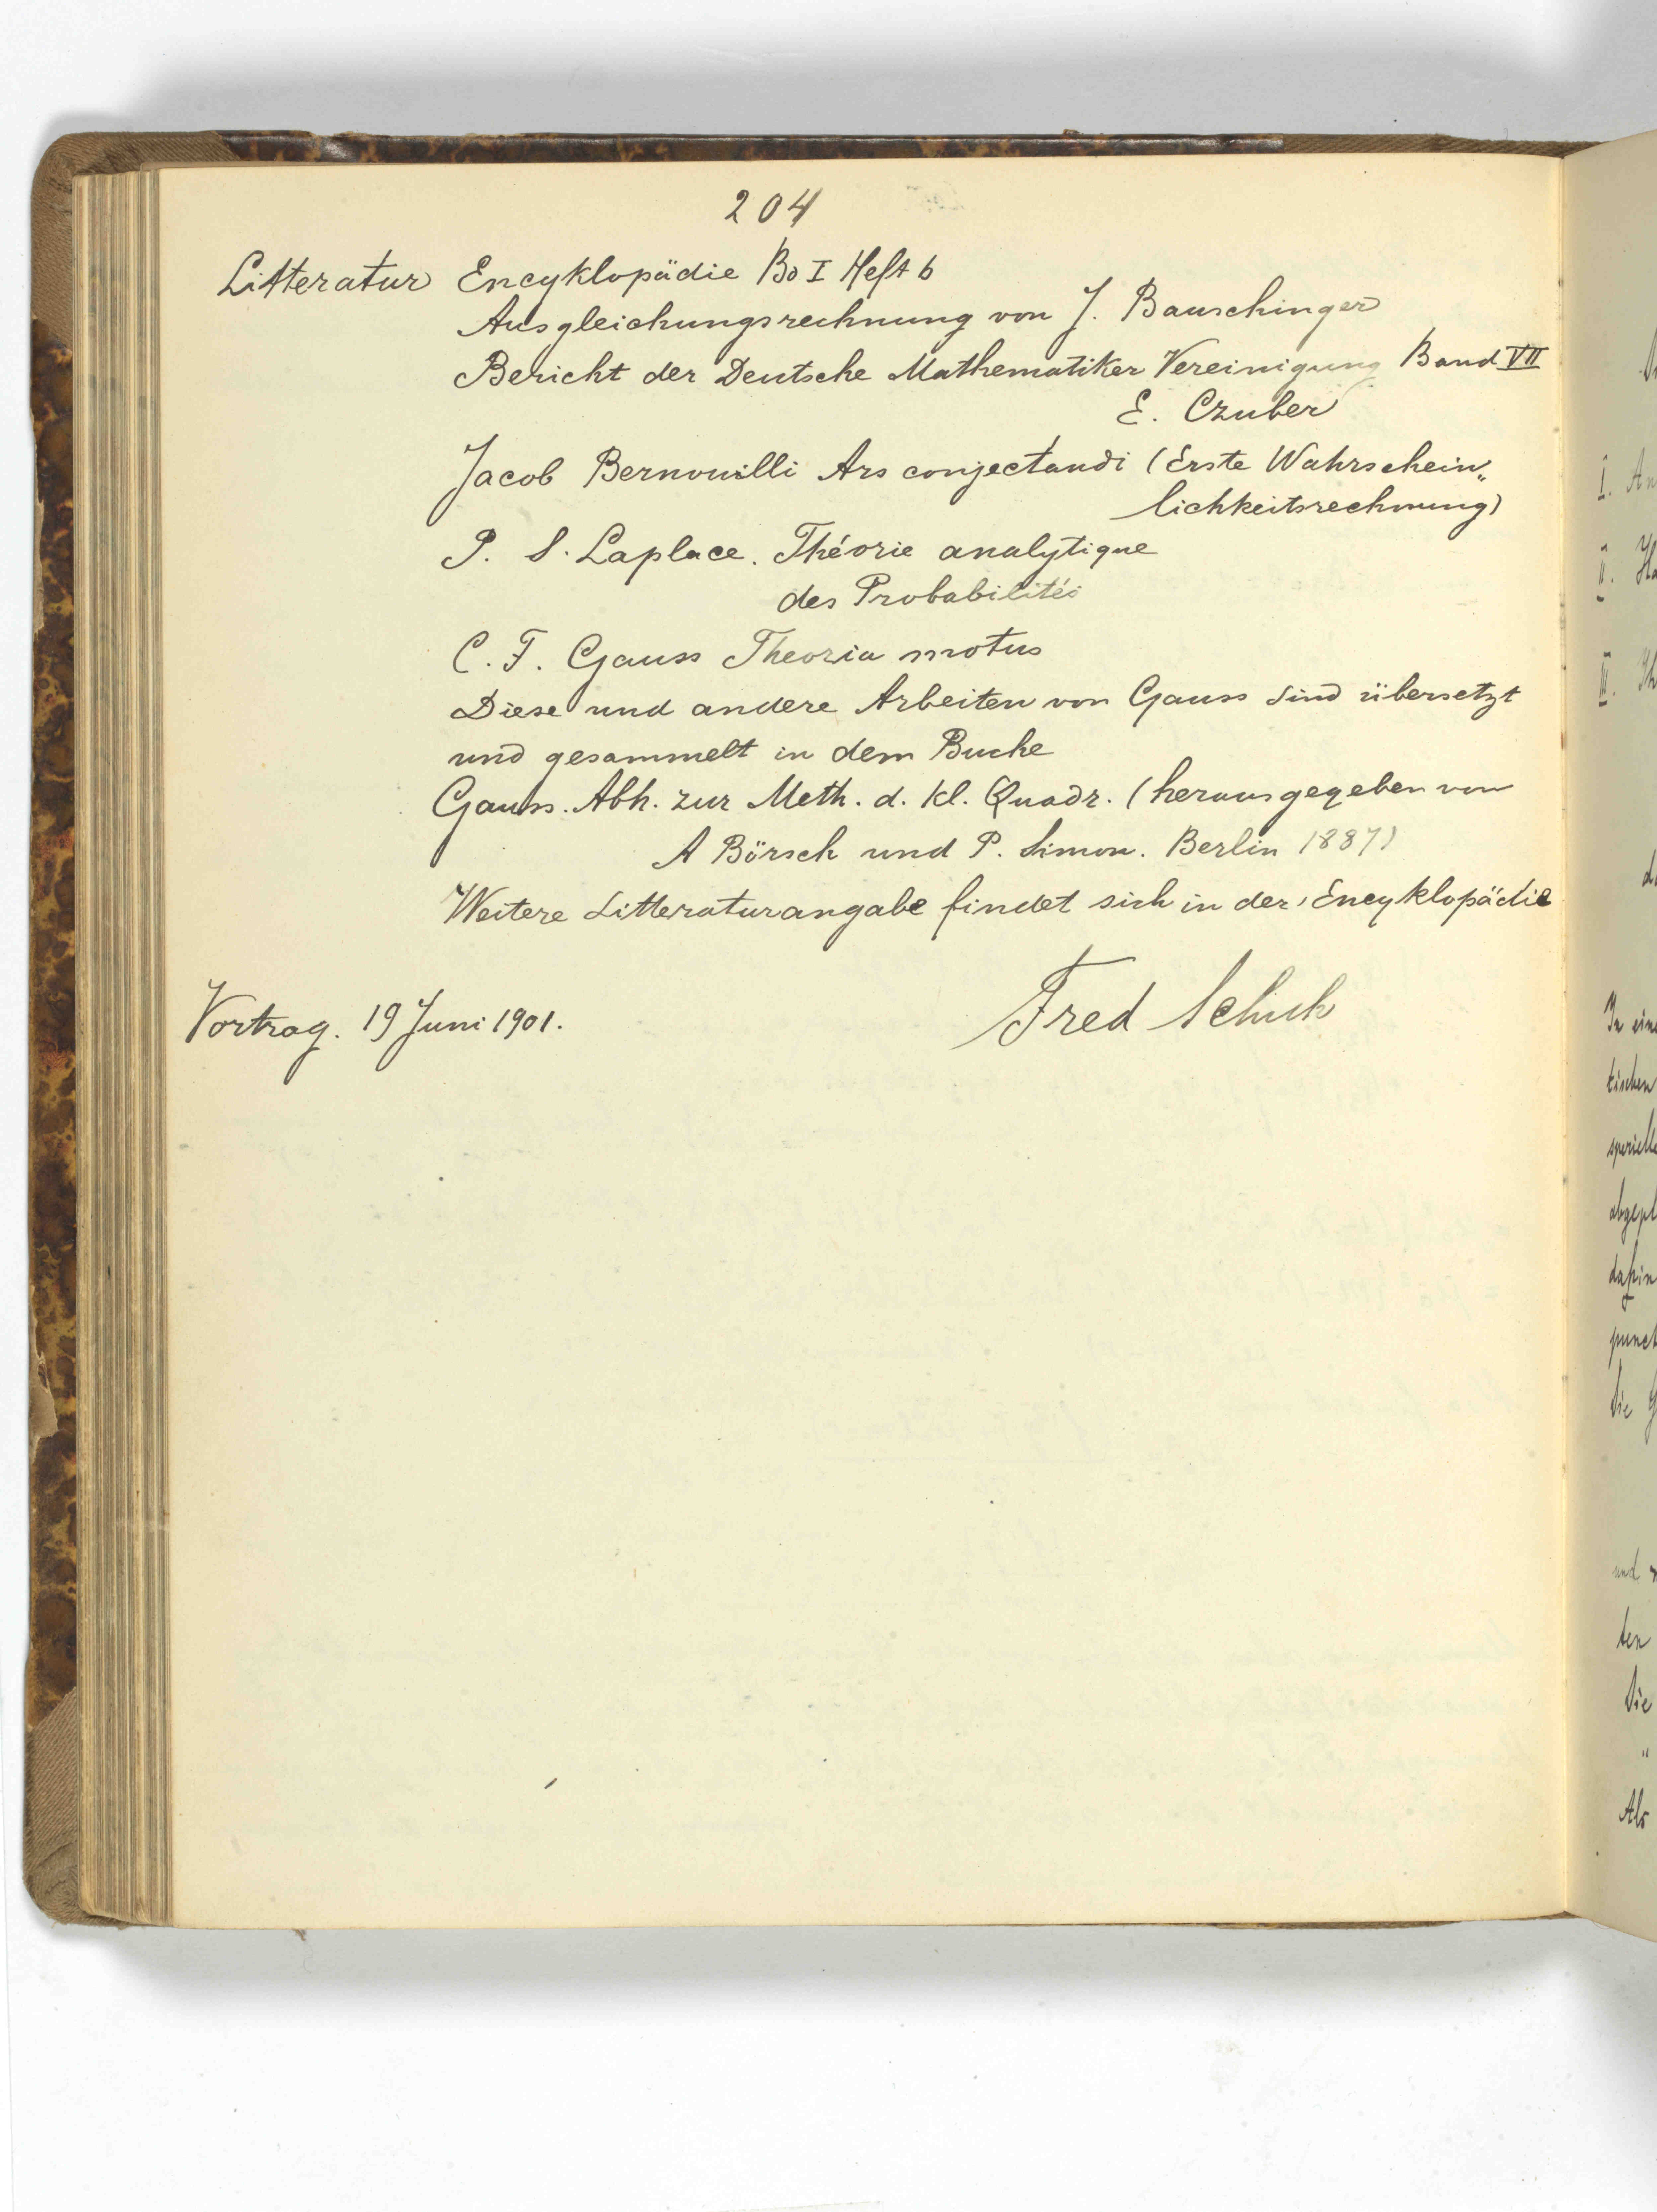 204
Litteratur Encyklopädie Bd I Heft 6
Ausgleichungsrechnung von J. Bauschinger
Bericht der Deutsche Mathematiker Vereinigung Band VII
E. Czuber
Jacob Bernouilli Ars conjectandi (Erste Wahrschein„
lichkeitsrechnung)
P. S. Laplace. Théorie analytique
des Probabilités
C. F. Gauss Theoria motus
Diese und andere Arbeiten von Gauss sind übersetzt
und gesammelt in dem Buche
Gauss. Abh. zur Meth. d. kl. Quadr. (herausgegeben von
A Börsch und P. Simon. Berlin 1887)
Weitere Litteraturangabe findet sich in der Encyklopädie
Vortrag. 19 Juni 1901. Fred Schuh